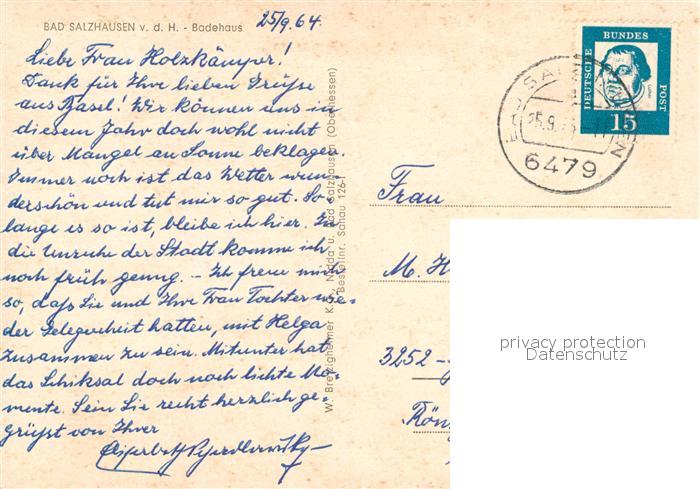 BAD SALZHAUSEN v. d. H. - Badehaus
25/9. 64.
Liebe Frau Holzkämper!
Dank für Ihre lieben Grüße
aus Basel! Wir können uns in
diesem Jahr doch wohl nicht
über Mangel an Sonne beklagen.
Immer noch ist das Wetter wun-
derschön und tut mir so gut. So-
lange es so ist, bleibe ich hier. In
die Unruhe der Stadt komme ich
noch früh genug. - Ich freue mich
so, daß Sie und Ihre Frau Tochter wie-
der Gelegenheit hatten, mit Helga
zusammen zu sein. Mitunter hat
das Schiksal doch noch lichte Mo-
mente. Sein Sie recht herzlich ge-
grüßt von Ihrer
W. Bretzigheimer K.G., Nidda u. Bad Salzhausen (Oberhessen)
Bestellnr. Sahau 126
DEUTSCHE
BUNDES
POST
15
25.9.
6479
Frau
M. H
3252
privacy protection
Datenschutz